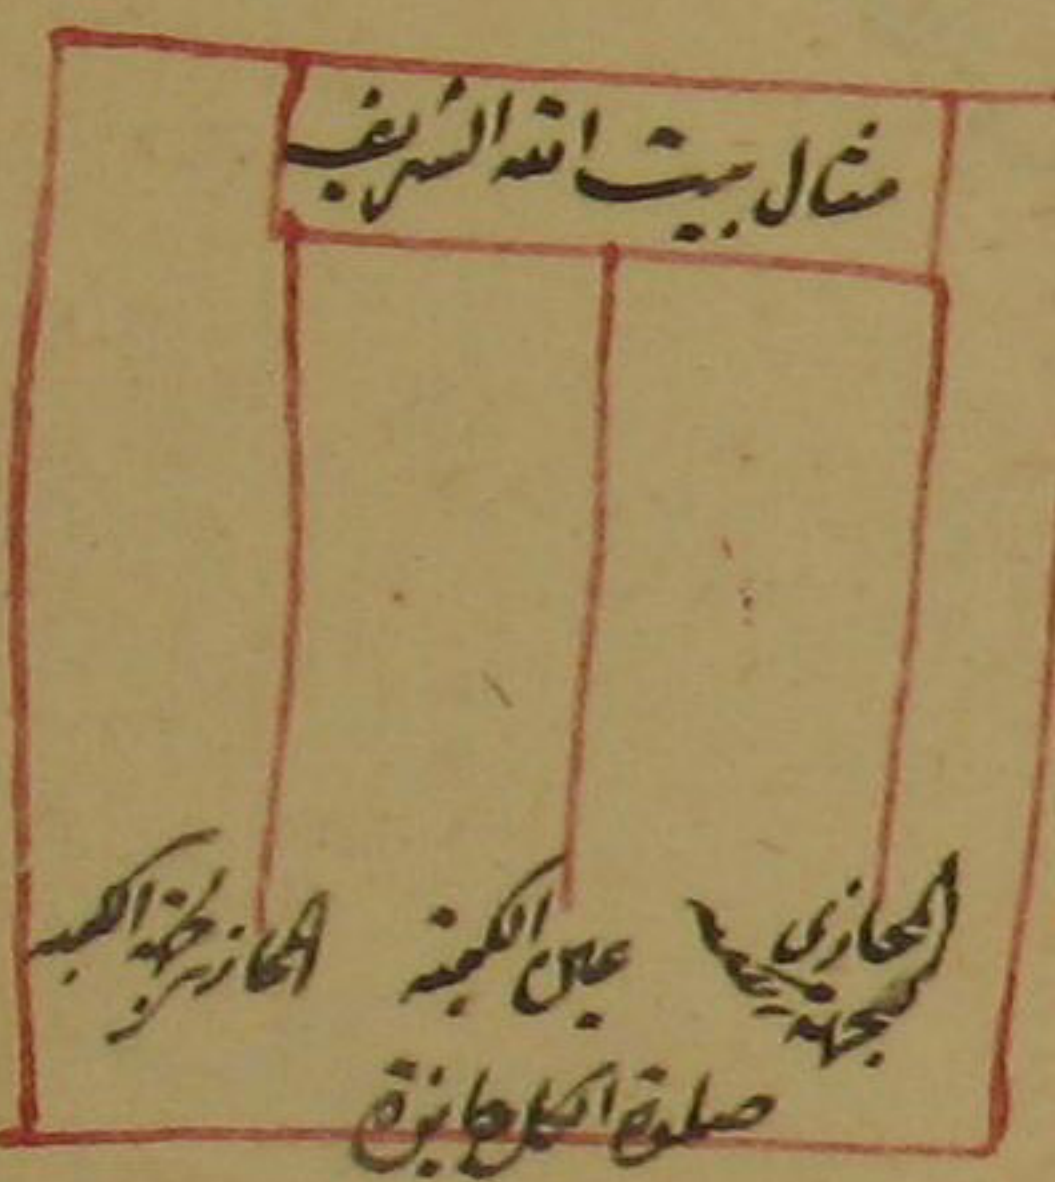 مثال بيت الله الشريف
المحازى لجهة
عين الكعبة
المحازى لجهة الكعبه
صلوة الكل جايزة